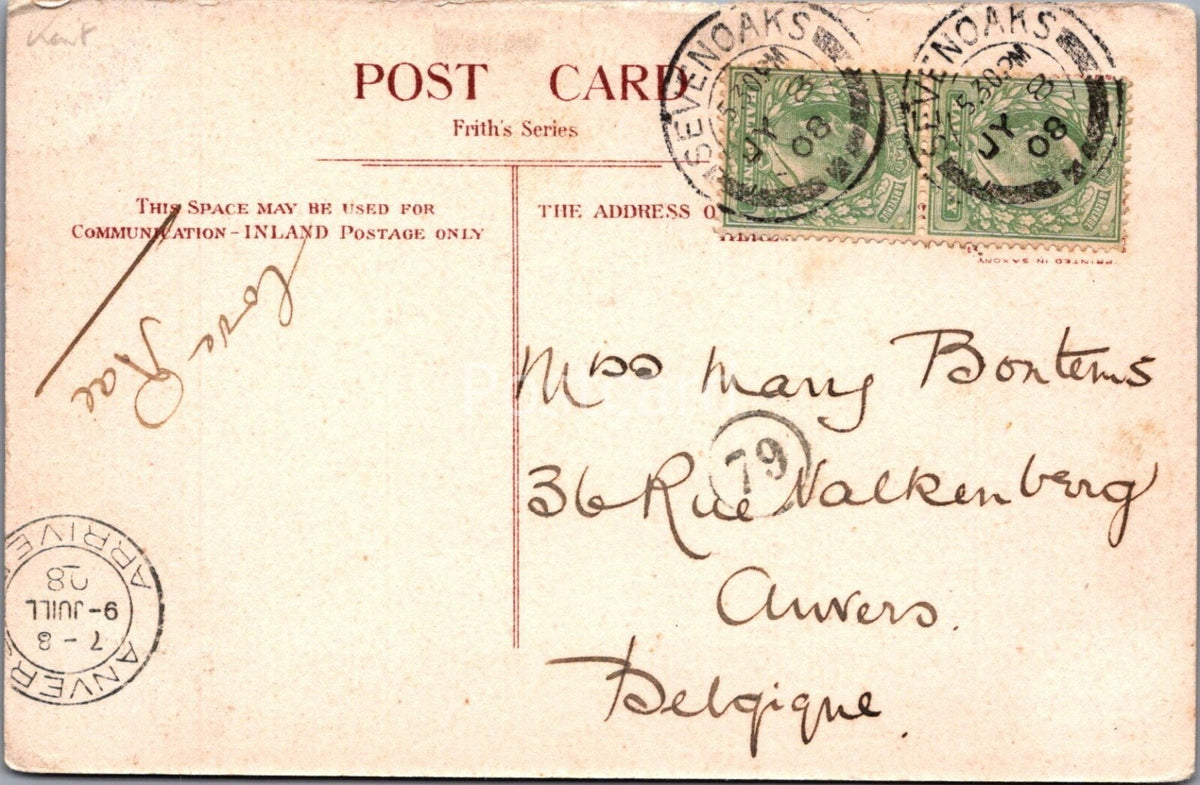 Kent
POST CARD
Frith's Series
THIS SPACE MAY BE USED FOR
COMMUNICATION - INLAND POSTAGE ONLY
THE ADDRESS O
PRINTED IN SAXONY
SEVENOAKS
5.30 PM
8
JY
08
SEVENOAKS
5.30 PM
8
JY
08
HALFPENNY
Love Rae
Miss Mary Bontems
79
36 Rue Valkenberg
Anvers.
Belgique.
ANVERS
7-8
9-JUILL
08
ARRIVE